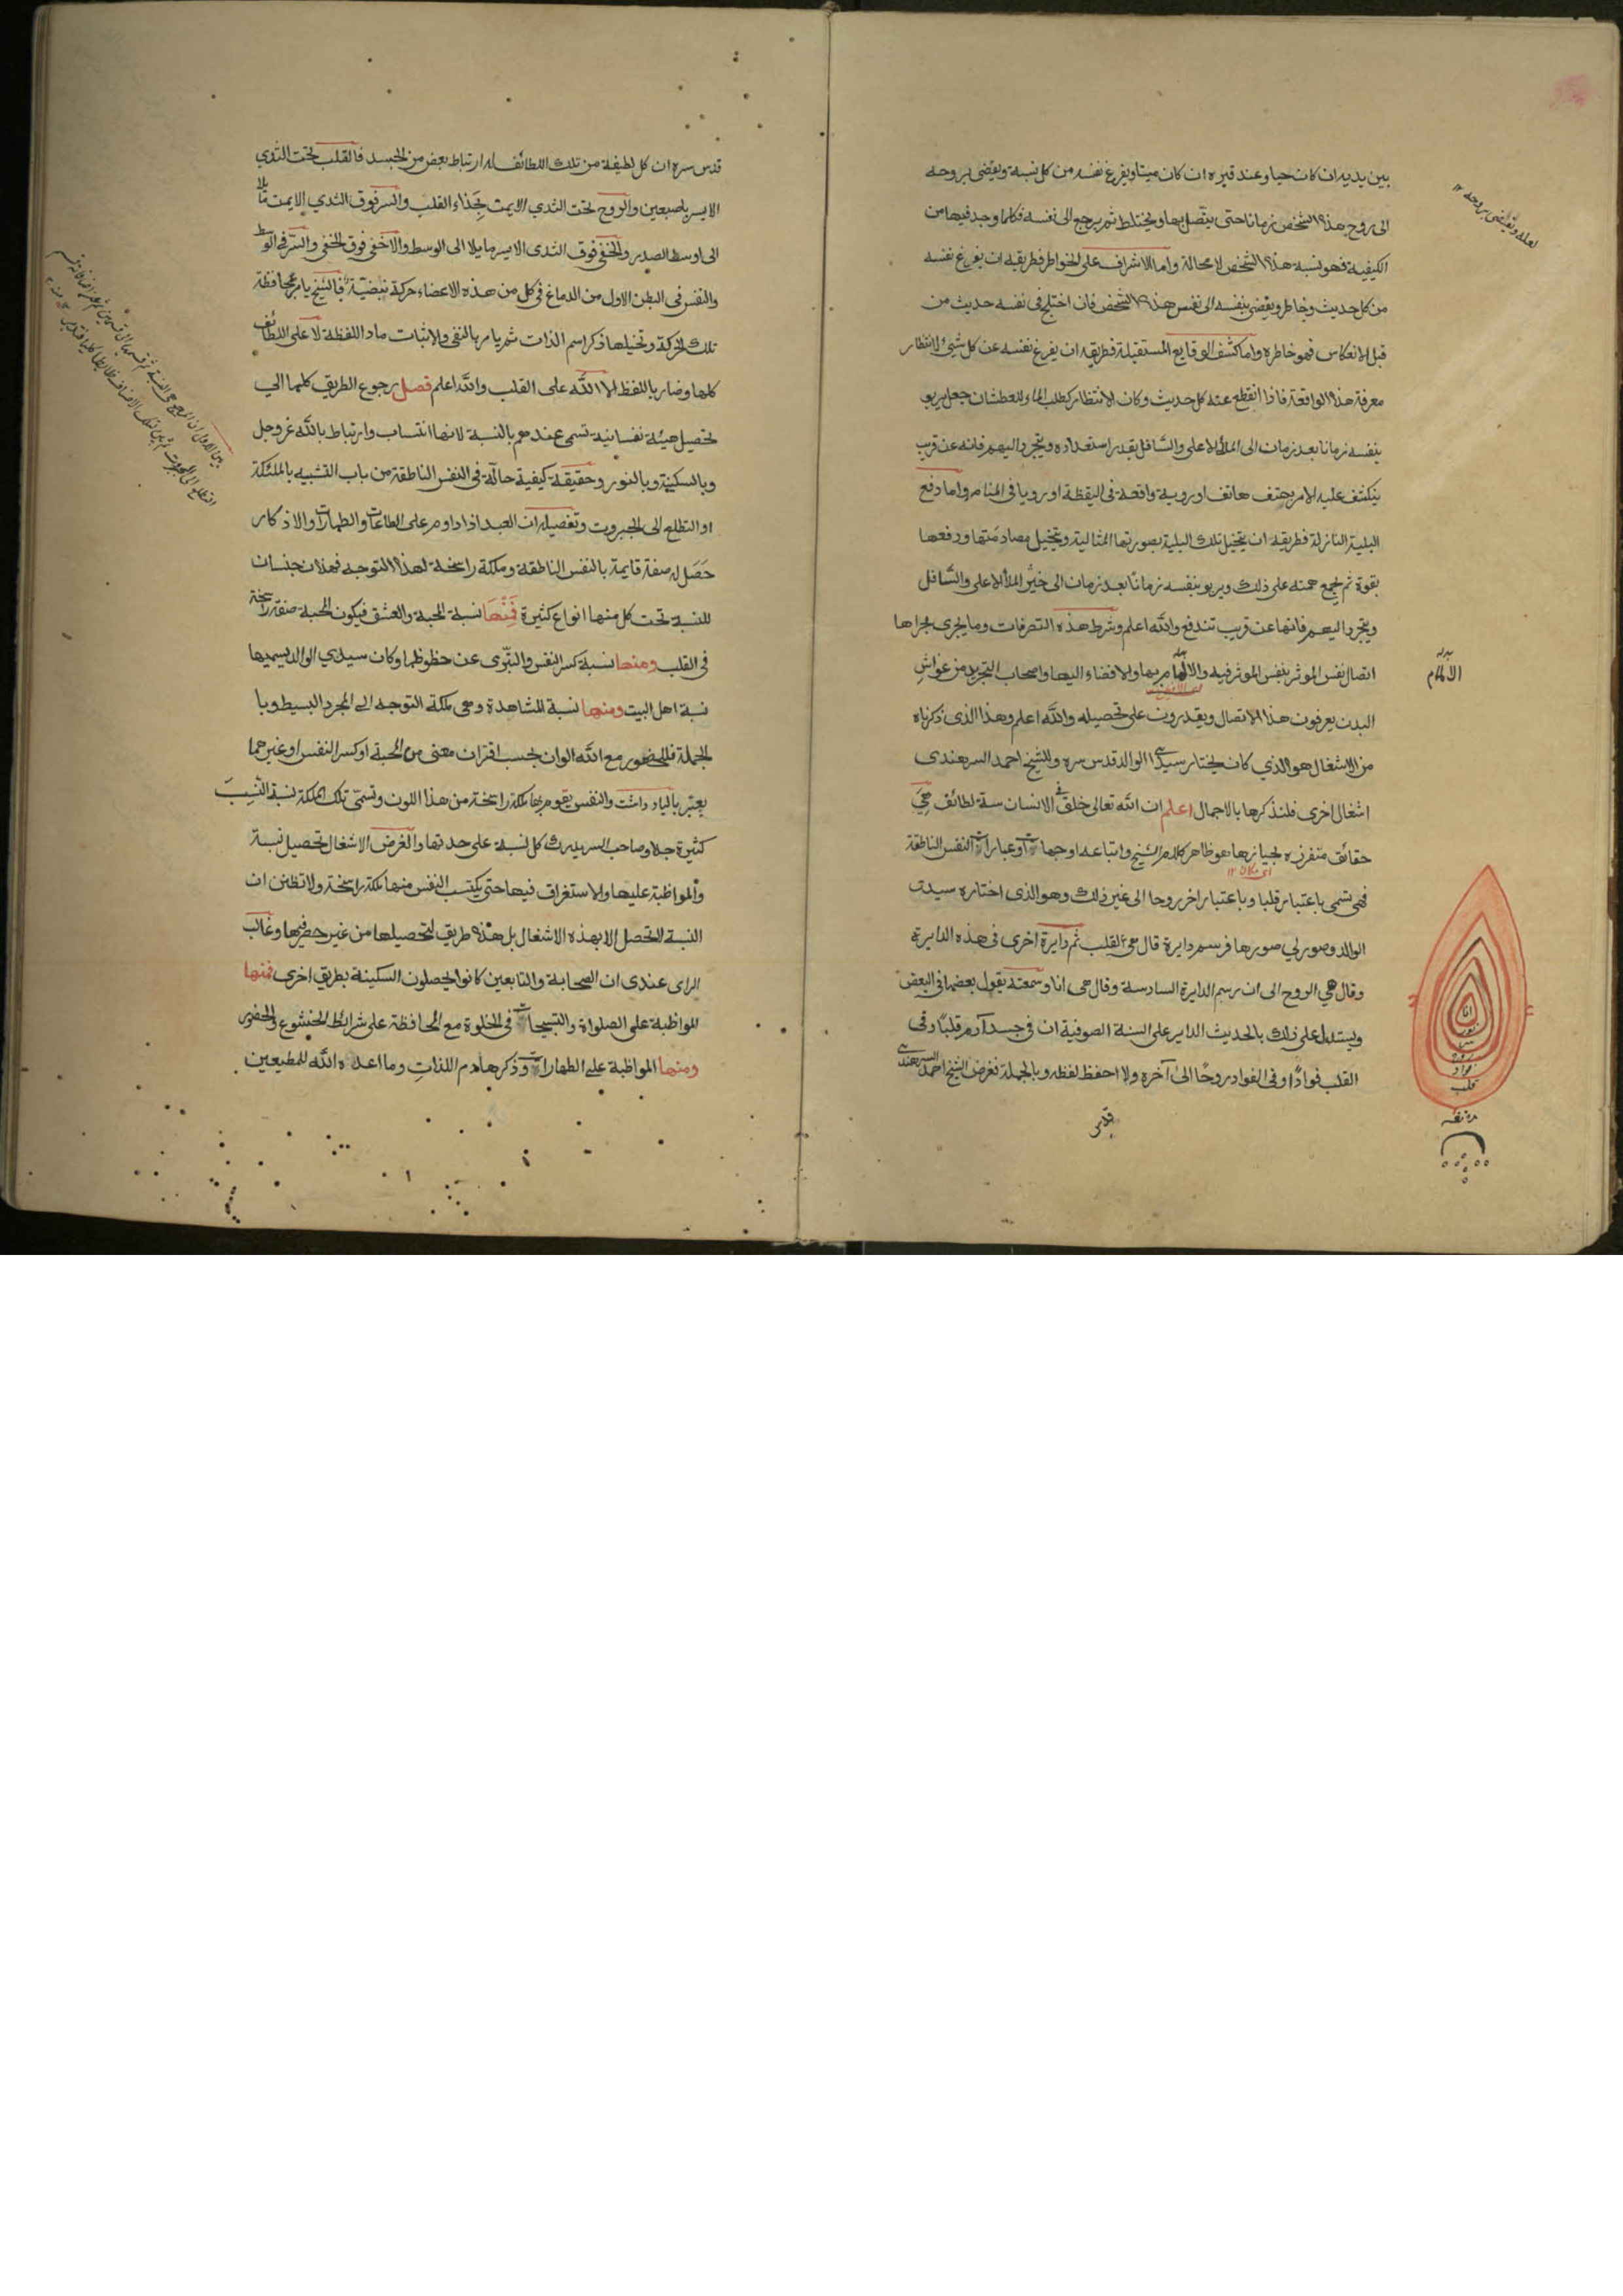 بين يديه ان كان حيا وعند قبره ان كان ميتا ويفرغ نفسه من كل نسبة ويفضى بروحه
الى روح هذا الشخص زمانا حتى يتصل بها ويختلط ثم يرجع الى نفسه فكلما وجد فيها من
الكيفية فهو نسبة هذا الشخص لا محالة واما الاشراف على الخواطر فطريقه ان يفرغ نفسه
من كل حديث وخاطر ويفضى بنفسه الى نفس هذا الشخص فان اختلج فى نفسه حديث من
قبل الانعكاس فهو خاطره واما كشف الوقايع المستقبلة فطريقه ان يفرغ نفسه عن كل شئ الا انتظار
معرفة هذه الواقعة فاذا انقطع عنه كل حديث وكان الانتظار كطلب الماء للعطشان جعل يربو
بنفسه زمانا بعد زمان الى الملأ الاعلى والسافل بقدر استعداده ويتجرد اليهم فانه عن قريب
ينكشف عليه الامر بهتف هاتف او روية واقعة فى اليقظة او رويا فى المنام واما دفع
البلية النازلة فطريقه ان يتخيل تلك البلية بصورتها المثالية ويتخيل مصادمتها ودفعها
بقوة ثم يجمع همته على ذلك ويربو بنفسه زمانا بعد زمان الى حيز الملأ الاعلى والسافل
ويتجرد اليهم فانها عن قريب تندفع والله اعلم وشرط هذه التصرفات وما يجرى مجراها
اتصال نفس الموثر بنفس الموثر فيه والالمام بها والافضاء اليها واصحاب التجريد من غواش
البدن يعرفون هذا الاتصال ويقدرون على تحصيله والله اعلم وهذا الذى ذكرناه
من الاشغال هو الذي كان يختار سيدى الوالد قدس سره وللشيخ احمد السرهندى
اشغال اخرى فلنذكرها بالاجمال اعلم ان الله تعالى خلق فى الانسان ستة لطائف هي
حقائق متفرزه بحيازها هو ظاهر كلام الشيخ واتباعه او جهات او عبارات النفس الناطقة
اى مكان ١٢
فهى تسمى باعتبار قلبا وباعتبار اخر روحا الى غير ذلك وهو الذى اختاره سيدى
الوالد وصور لي صورها فرسم دايرة قال هي القلب ثم دايرة اخرى فى هذه الدايرة
وقال هي الروح الى ان رسم الدايرة السادسة وقال هى انا وسمعته يقول بعضها فى البعض
ويستدل على ذلك بالحديث الداير على السنة الصوفية ان فى جسد آدم قلبًا وفى
القلب فوادًا وفى الفواد روحًا الى آخره ولا احفظ لفظه وبالجملة فغرض الشيخ احمد السرهندى
قدس
لعله ويفضى بروحه ١٢
بدله
الالمام
انا
قلب
قدس سره ان كل لطيفة من تلك اللطائف له ارتباط بعض من الجسد فالقلب تحت الثدي
الايسر باصبعين والروح تحت الثدي الايمن بحذاء القلب والسر فوق الثدي الايمن مائلا
الى اوسط الصدر والخفى فوق الثدى الايسر مايلا الى الوسط والاخفى فوق الخفى والسر فى الوسط
والنفس فى البطن الاول من الدماغ فى كل من هذه الاعضاء حركة نبضية فالشيخ يامر بمحافظة
تلك الحركة وتخيلها ذكر اسم الذات ثم يامر بالنفى والاثبات مادا اللفظة لا على اللطائف
كلها وضاربا للفظ الا الله على القلب والله اعلم فصل رجوع الطريق كلها الي
تحصيل هيئة نفسانية تسمى عندهم بالنسبة لانها انتساب وارتباط بالله عز وجل
وبالسكينة وبالنور وحقيقة كيفية حالّة فى النفس الناطقة من باب التشبيه بالملئكة
او التطلع الى الجبروت وتفصيله ان العبد اذا داوم على الطاعات والطهارات والاذكار
حَصَل له صفة قايمة بالنفس الناطقة وملكة راسخة لهذا التوجه فهذان جنسان
للنسبة تحت كل منها انواع كثيرة فَمِنْهَا نسبة المحبة والعشق فيكون المحبة صفة راسخة
فى القلب ومنها نسبة كسر النفس والتبرّى عن حظوظها وكان سيدي الوالد يسميها
نسبة اهل البيت ومنها نسبة المشاهدة وهى ملكة التوجه الى المجرد البسيط وبا
لجملة فللحضور مع الله الوان بحسب اقتران معنى من المحبة او كسر النفس او غيرهما
يعبّر بالياد داشت والنفس يقوم بها ملكة راسخة من هذا اللون وتسمّى تلك الملكة نسبة النسب
كثيرة جدا وصاحب السر يدرك كل نسبة على حدتها والغرض الاشغال تحصيل نسبة
والمواظبة عليها والاستغراق فيها حتى يكتسب النفس منها ملكة راسخة ولا تظنن ان
النسبة لا تحصل الا بهذه الاشغال بل هذه طريق لتحصيلها من غير حصر فيها وغالب
الراى عندى ان الصحابة والتابعين كانوا يحصلون السكينة بطريق اخرى فمنها
المواظبة على الصلواة والتسبيحات فى الخلوة مع المحافظة على شرائط الخشوع والحضور
ومنها المواظبة على الطهارات وذكر هادم اللذات وما اعده الله للمطيعين